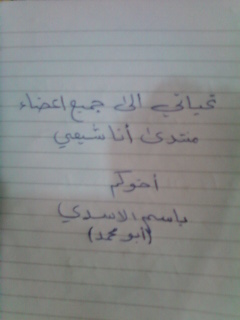 تحياتي الى جميع اعضاء
منتدى أنا شيعي
أخوكم
باسم الاسدي
(أبو محمد)